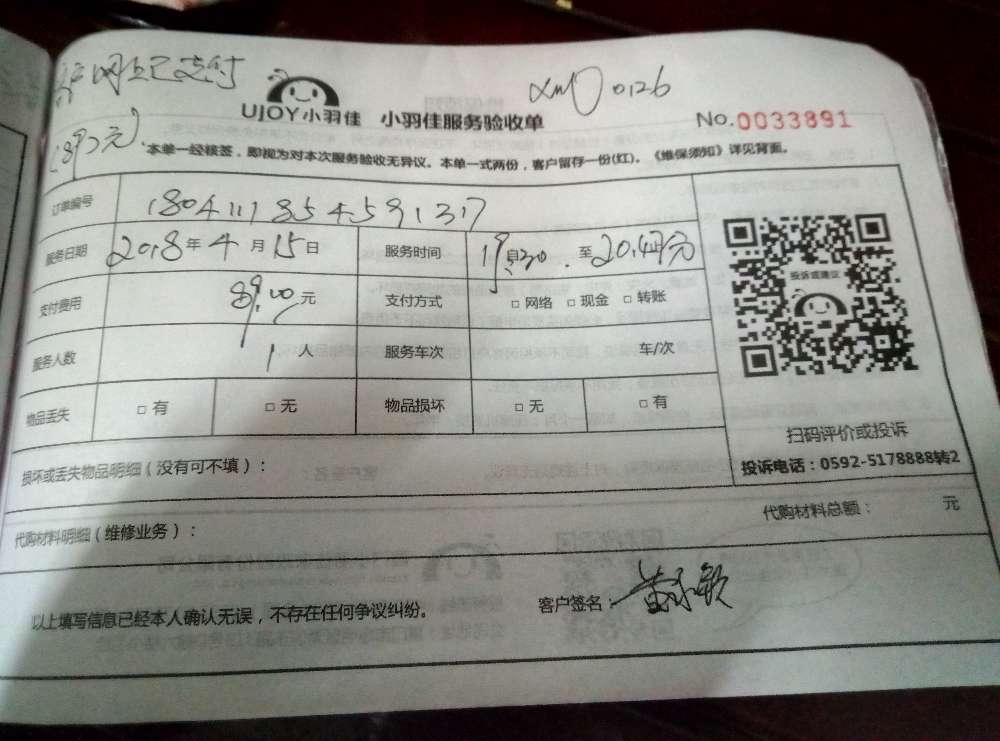 网上已支付
XM 0126
UJOY小羽佳 小羽佳服务验收单
No.0033891
本单一经核签，即视为对本次服务验收无异议。本单一式两份，客户留存一份(红)。《维保须知》详见背面。
订单编号 1804111854591317
服务日期 2018年4月15日 服务时间 至
支付费用 89.00元 支付方式 □网络 □现金 □转账
服务人数 1人 服务车次 车/次
物品丢失 □有 □无 物品损坏 □无 □有
投诉或建议
扫码评价或投诉
投诉电话：0592-5178888转2
损坏或丢失物品明细（没有可不填）：
代购材料明细（维修业务）： 代购材料总额： 元
以上填写信息已经本人确认无误，不存在任何争议纠纷。 客户签名：